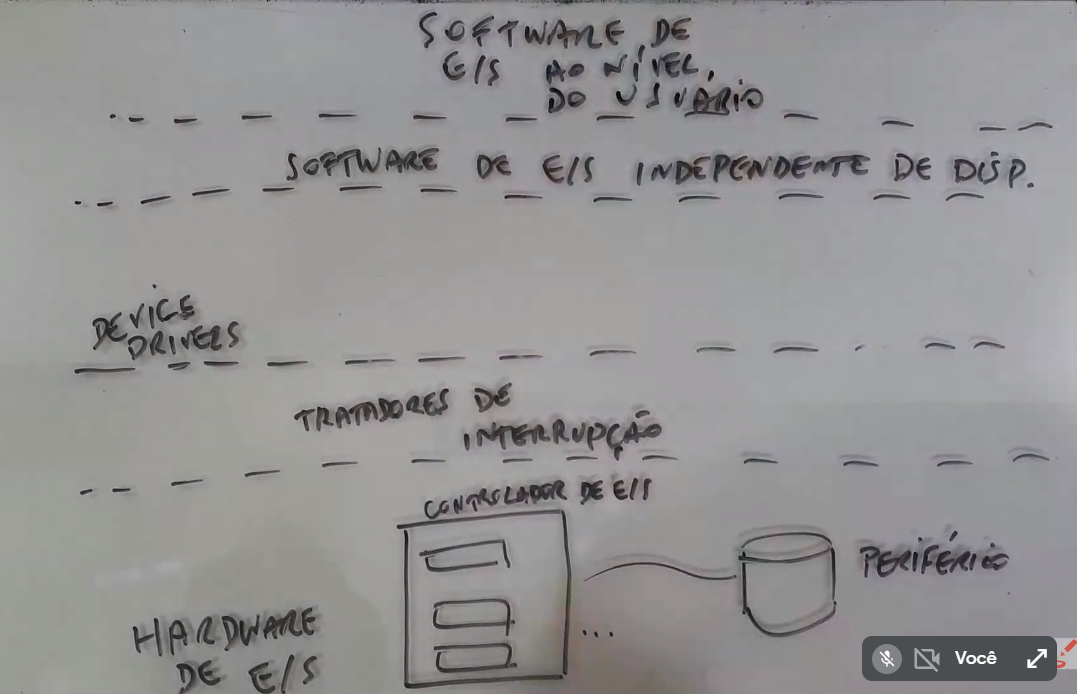 SOFTWARE DE
E/S AO NÍVEL
DO USUÁRIO
SOFTWARE DE E/S INDEPENDENTE DE DISP.
DEVICE
DRIVERS
TRATADORES DE
INTERRUPÇÃO
CONTROLADOR DE E/S
PERIFÉRICO
...
HARDWARE
DE E/S
Você